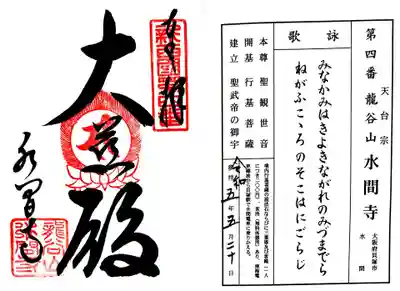 天台宗
第四番 龍谷山 水間寺
大阪府貝塚市
水間
詠歌
みなかみはきよきながれのみづまでら
ねがふこゝろのそこはにごらじ
本尊 聖観世音
開基 行基菩薩
建立 聖武帝の御宇
令和五年五月二十日
奉拝
大悲殿
水間寺